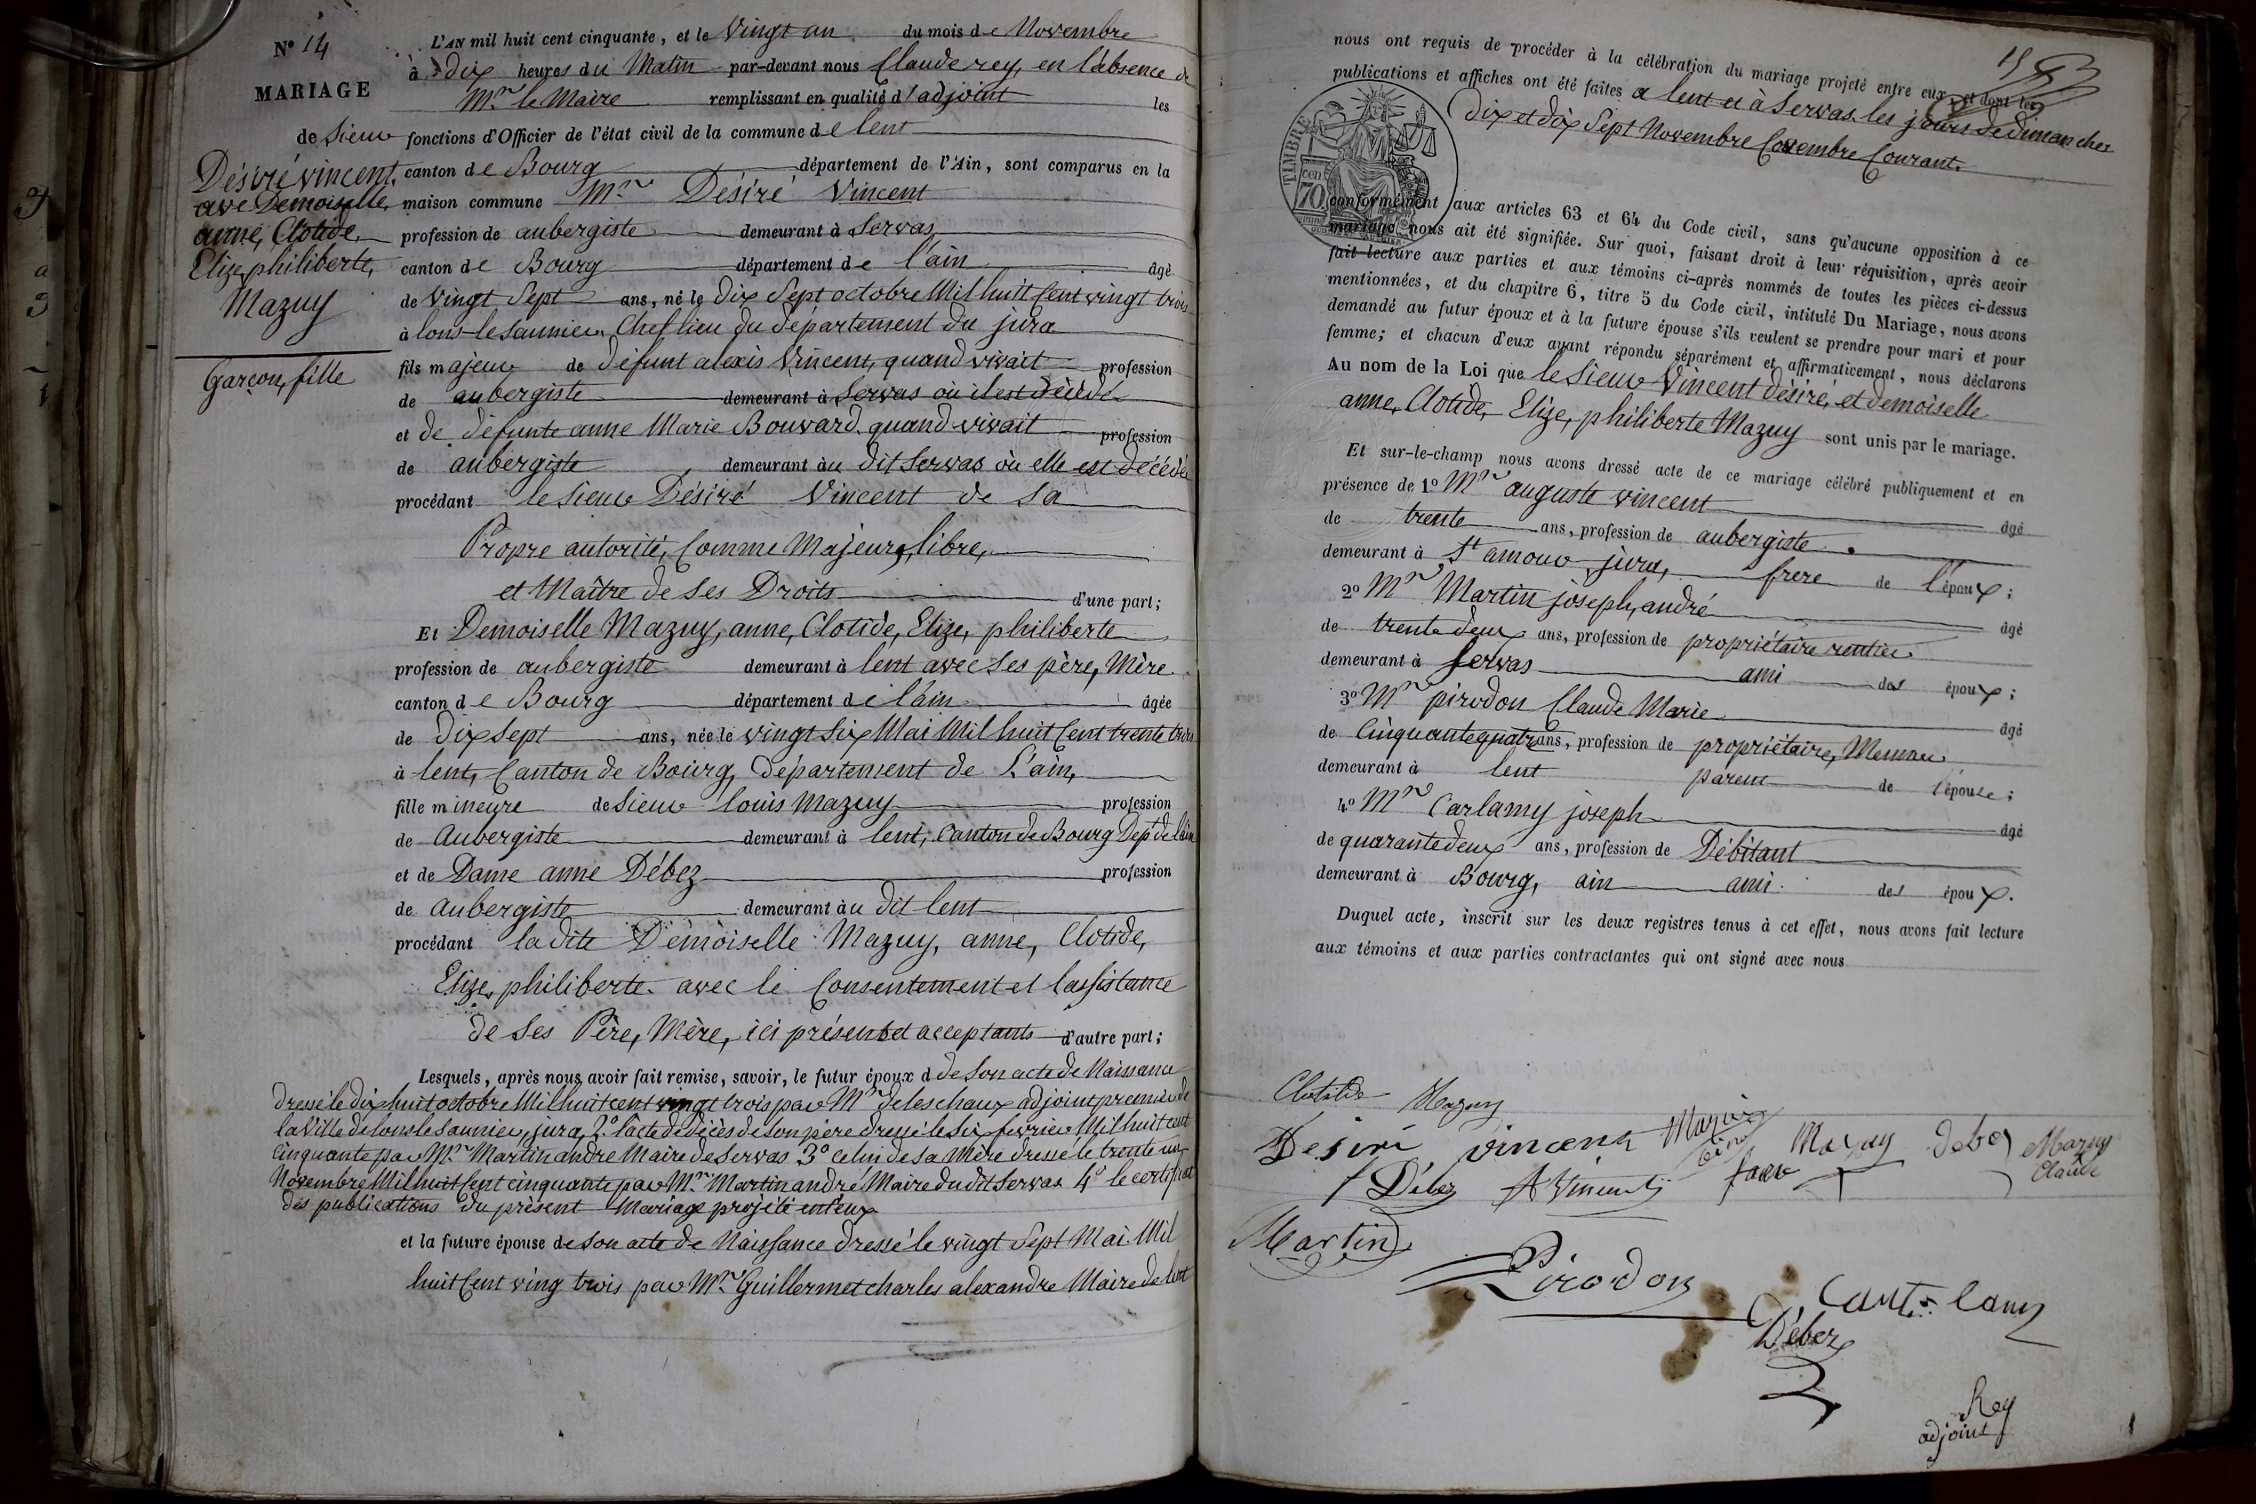 N° 14
MARIAGE
de Sieur
Désiré vincent.
ave Demoiselle,
anne, Clotide,
Elize, philiberte,
Mazuy
Garçon, fille
L'AN mil huit cent cinquante, et le Vingt un du mois de Novembre
à dix heures du Matin par-devant nous Claude rey, en l'absence de
Mr. le Maire remplissant en qualité d'adjoint les
fonctions d'Officier de l'état civil de la commune de lent
canton de Bourg département de l'Ain, sont comparus en la
maison commune Mr. Désiré Vincent
profession de aubergiste demeurant à Servas,
canton de Bourg département de l'ain âgé
de Vingt Sept ans, né le dix Sept octobre Mil huit Cent vingt trois
à lons-le-Saunier, Chef lieu du département du jura
fils majeur de défunt alexis Vincent, quand vivait profession
de aubergiste demeurant à Servas où il est décédé
et de défunte anne Marie Bouvard quand vivait profession
de aubergiste demeurant au dit Servas où elle est décédée
procédant le Sieur Désiré Vincent de Sa
Propre autorité, Comme Majeur, libre,
et Maître de Ses Droits d'une part;
Et Demoiselle Mazuy, anne, Clotide, Elize, philiberte
profession de aubergiste demeurant à lent avec Ses père, Mère
canton de Bourg département de l'ain âgée
de Dix sept ans, née le vingt Six Mai Mil huit Cent trente trois
à lent, Canton de Bourg, Département de L'ain,
fille mineure de Sieur louis Mazuy profession
de Aubergiste demeurant à lent, Canton de Bourg Dept. de l'ain
et de Dame anne Débez profession
de Aubergiste demeurant au dit lent
procédant la dite Demoiselle Mazuy, anne, Clotide,
Elize, philiberte avec le Consentement et l'assistance
de Ses Père, Mère, ici présent et acceptants d'autre part;
Lesquels, après nous avoir fait remise, savoir, le futur époux d de Son acte de Naissance
dressé le dix huit octobre Mil huit cent vingt trois par Mr. deleschaux adjoint premier de
la Ville de lons le Saunier, jura, 2° l'acte de décès de Son père dressé le Six février Mil huit cent
Cinquante par Mr. Martin andré Maire de Servas 3° celui de Sa Mère dressé le trente un
Novembre Mil huit Cent cinquante par Mr. Martin andré Maire du dit Servas 4° le certificat
des publications du présent Mariage projété entr'eux
et la future épouse de Son acte de Naissance dressé le vingt Sept Mai Mil
huit Cent ving trois par Mr. Guillermet charles alexandre Maire de lent
nous ont requis de procéder à la célébration du mariage projeté entre eux, et dont les
publications et affiches ont été faites a lent et à Servas, les jours de dimanches
Dix et dix Sept Novembre Courant.
TIMBRE
70
conformément aux articles 63 et 64 du Code civil, sans qu'aucune opposition à ce
mariage nous ait été signifiée. Sur quoi, faisant droit à leur réquisition, après avoir
fait lecture aux parties et aux témoins ci-après nommés de toutes les pièces ci-dessus
mentionnées, et du chapitre 6, titre 5 du Code civil, intitulé Du Mariage, nous avons
demandé au futur époux et à la future épouse s'ils veulent se prendre pour mari et pour
femme; et chacun d'eux ayant répondu séparément et affirmativement, nous déclarons
Au nom de la Loi que le Sieur Vincent désiré, et demoiselle
anne, Clotide, Elize, philiberte Mazuy sont unis par le mariage.
Et sur-le-champ nous avons dressé acte de ce mariage célébré publiquement et en
présence de 1° Mr. auguste vincent âgé
de trente ans, profession de aubergiste
demeurant à St amour, jura, frere de l'époux;
2° Mr. Martin joseph, andré âgé
de trente deux ans, profession de propriétaire rentier
demeurant à Servas ami des époux;
3° Mr. pirodon Claude Marie âgé
de Cinquante quatre ans, profession de propriétaire,
demeurant à lent parent de l'épouse;
4° Mr. Carlamy joseph âgé
de quarante deux ans, profession de Débitant
demeurant à Bourg, ain ami des époux.
Duquel acte, inscrit sur les deux registres tenus à cet effet, nous avons fait lecture
aux témoins et aux parties contractantes qui ont signé avec nous
Clotilde Mazuy
Désiré vincent Mazuy Débez Mazuy
Claude
Débez A Vincent
Martin
Pirodon
Débez
Rey
adjoint